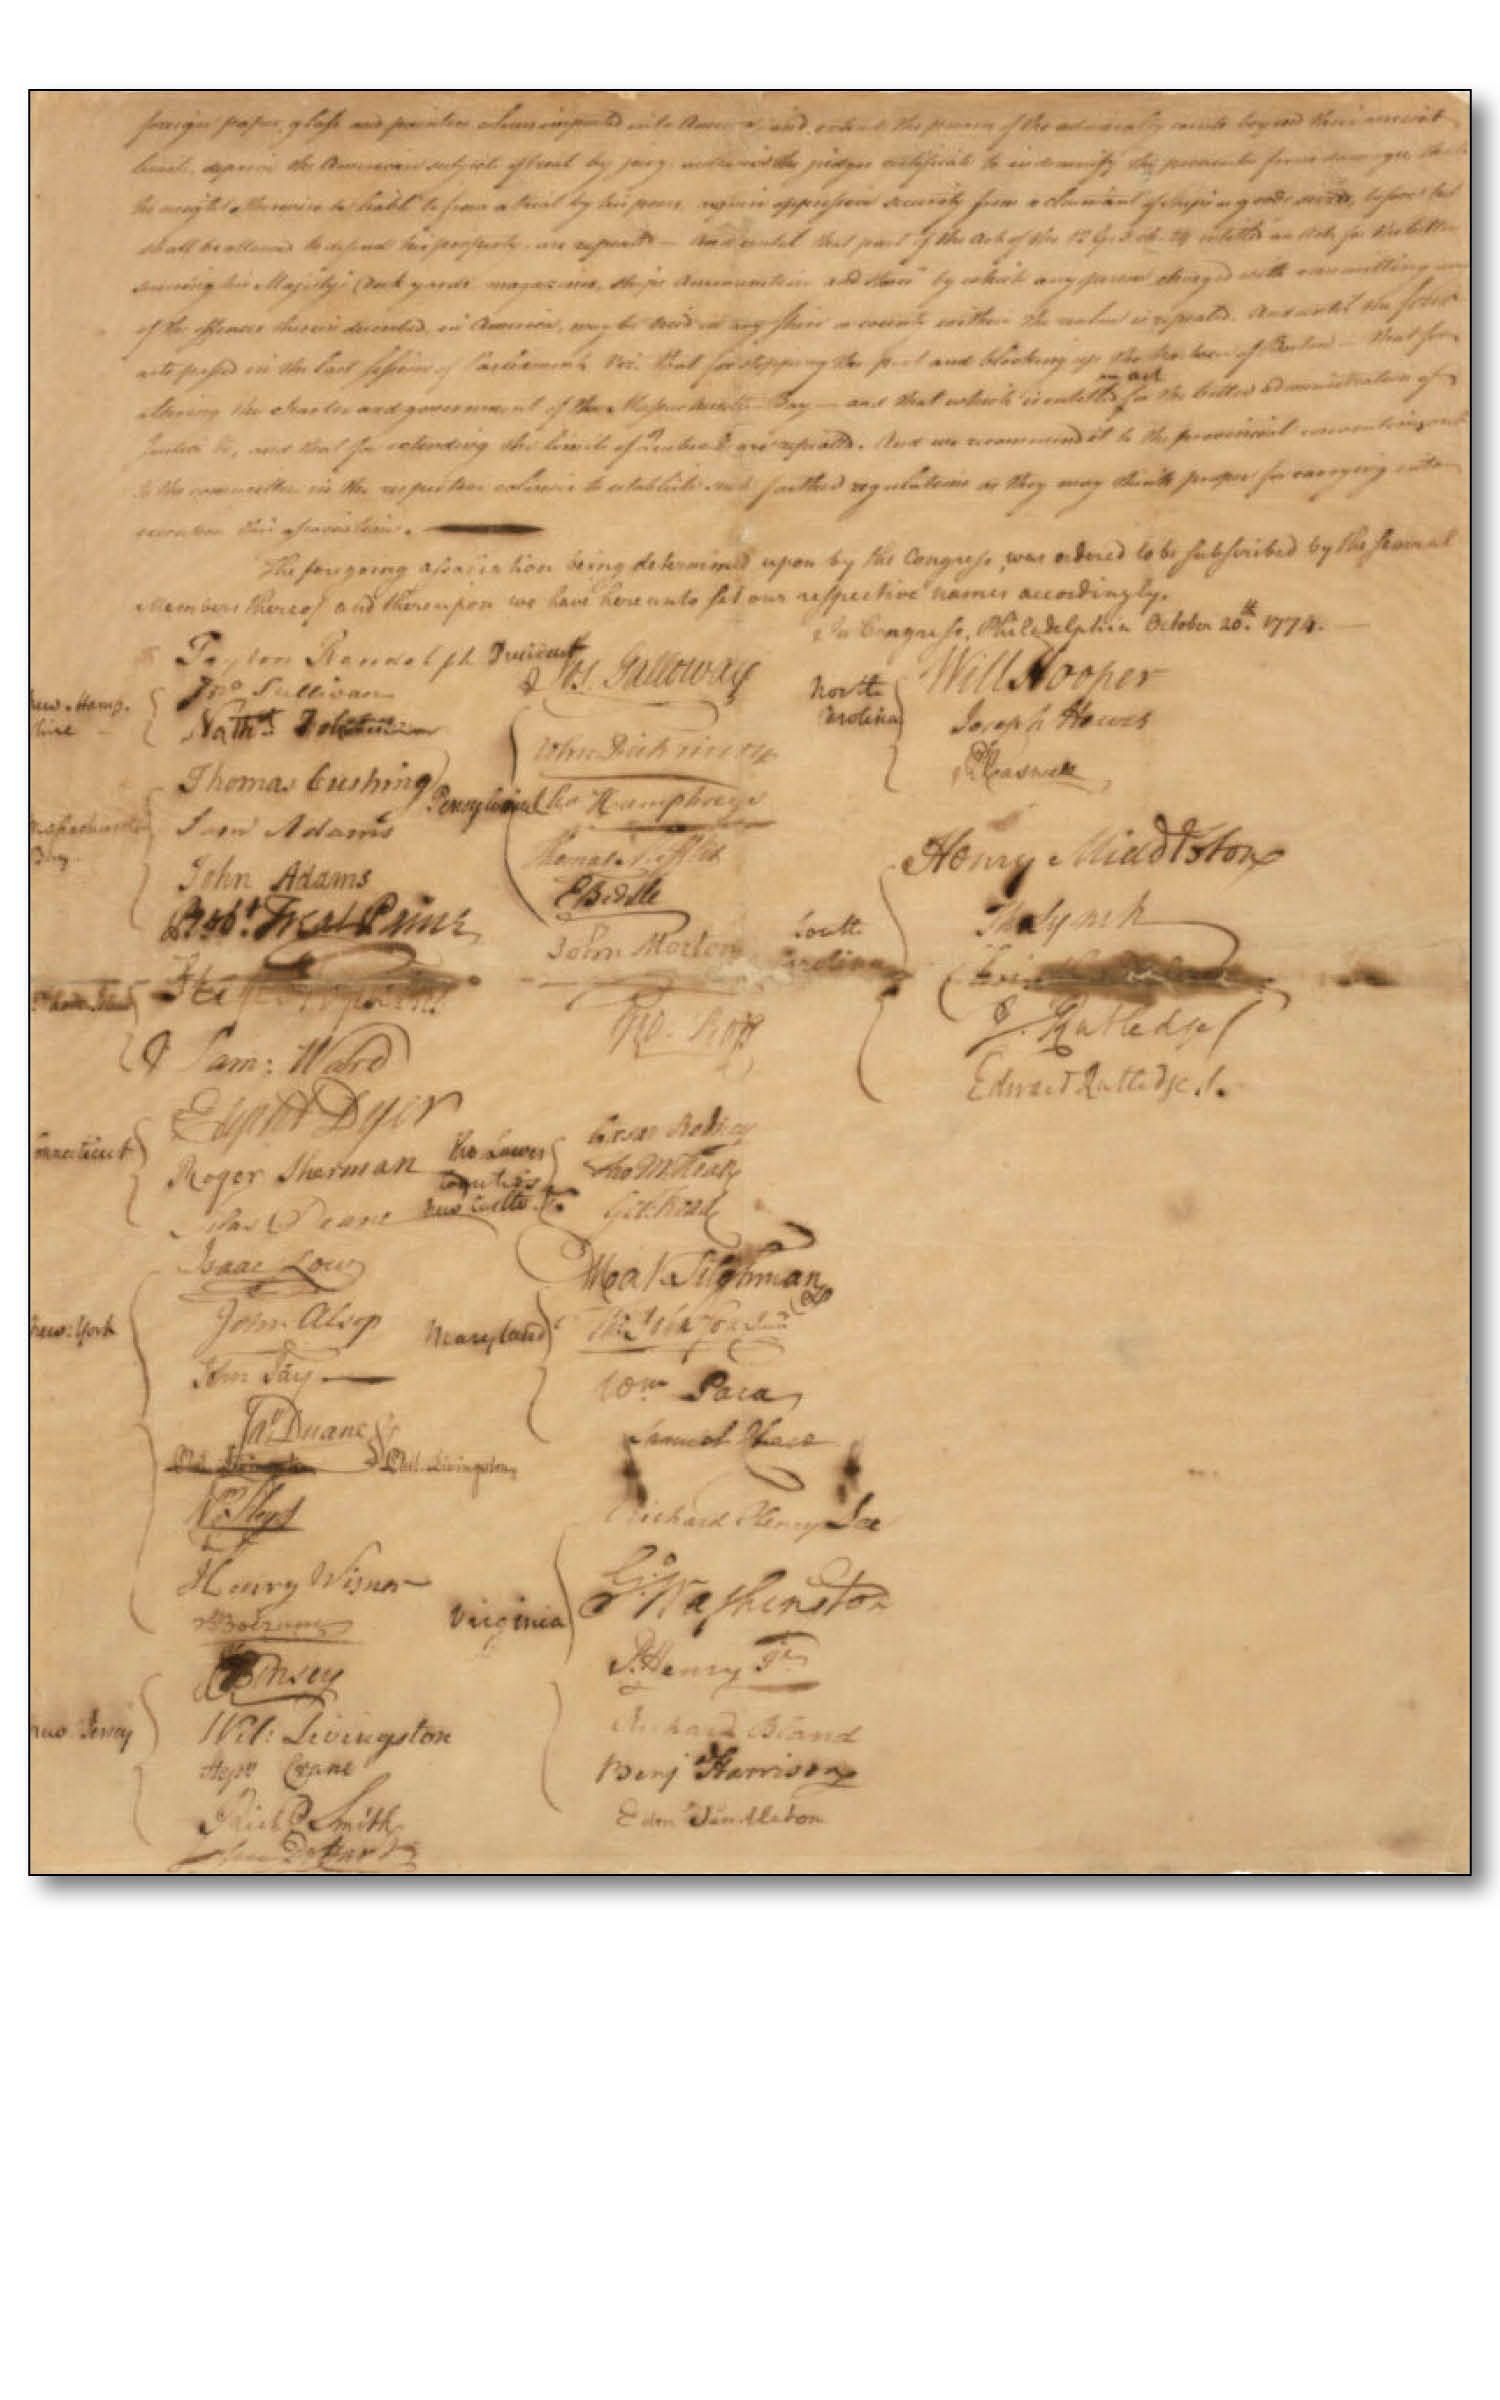 foreign paper, glass and painters colours imported into America, and extend the powers of the admiralty courts beyond their ancient
limits, deprive the American subject of trial by jury, authorise the judges certificate to indemnify the prosecutor from damages, that
he might otherwise be liable to from a trial by his peers, require oppressive security from a claimant of ships or goods seized, before he
shall be allowed to defend his property, are repealed — And until that part of the Act of the 12 G. 3. ch. 24 entitled an Act for the better
securing his Majesty's dock yards magazines, ships ammunition and stores by which any person charged with committing any
of the offences therein described, in America, may be tried in any shire or county within the realm is repealed. And until the four
acts passed in the last session of Parliament, viz. that for stopping the port and blocking up the harbour of Boston — that for
an act
altering the charter and government of the Massachusetts-Bay — and that which is entitled for the better administration of
Justice &c, and that for extending the limits of Quebec &c are repealed. And we recommend it to the provincial conventions and
to the committees in the respective colonies to establish such farther regulations as they may think proper for carrying into
execution this association.
The foregoing association being determined upon by the Congress, was ordered to be subscribed by the several
Members thereof and thereupon we have hereunto set our respective names accordingly.
In Congress, Philadelphia October 20th. 1774.
Peyton Randolph President
New-Hamp-
shire
Jno Sullivan
Nathl
Massachusetts
Bay
Thomas Cushing
Sam Adams
John Adams
Robt Treat Paine
Sam: Ward
Connecticut
Elipht Dyer
Roger Sherman
Silas Deane
New-York
Isaac Low
John Alsop
John Jay
Jas Duane
Phil. Livingston
Henry Wisner
S Boerum
New Jersey
Kinsey
Wil: Livingston
Stepn Crane
Richd Smith
John De Hart
Pensylvania
Jos. Galloway
John Dickinson
Cha Humphreys
Thomas Mifflin
E Biddle
John Morton
Geo. Ross
The Lower
Counties
New Castle
Caesar Rodney
Tho M:Kean
Geo: Read
Maryland
Mat. Tilghman
Th. Johnson Junr
Wm Paca
Samuel Chase
Virginia
Richard Henry Lee
Go. Washington
P. Henry Jr
Richard Bland
Benj Harrison
Edmd Pendleton
North
Carolina
Will Hooper
Joseph Hewes
R Caswell
South
Carolina
Henry Middleton
Tho Lynch
J. Rutledge
Edward Rutledge